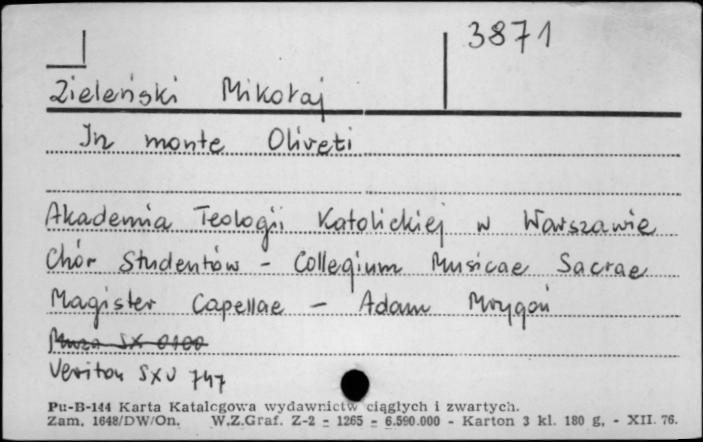 3871
Zieleński Mikołaj
In monte Oliveti
Akademia Teologii Katolickiej w Warszawie
Chór Studentów - Collegium Musicae Sacrae
Magister Capellae - Adam Mrygoń
Muza SX 0100
Veriton SXV 747
Pu-B-144 Karta Katalogowa wydawnictw ciągłych i zwartych.
Zam. 1648/DW/On. W.Z.Graf. Z-2 - 1265 - 6.590.000 - Karton 3 kl. 180 g. - XII. 76.